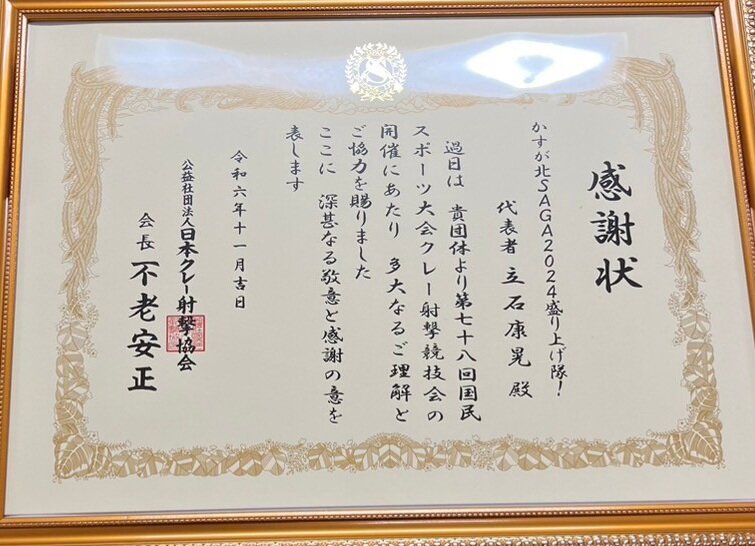 感謝状
かすが北SAGA2024盛り上げ隊!
代表者 立石康晃 殿
過日は 貴団体より第七十八回国民
スポーツ大会クレー射撃競技会の
開催にあたり 多大なるご理解と
ご協力を賜りました
ここに 深甚なる敬意と感謝の意を
表します
令和六年十一月吉日
公益社団法人日本クレー射撃協会
会長 不老安正